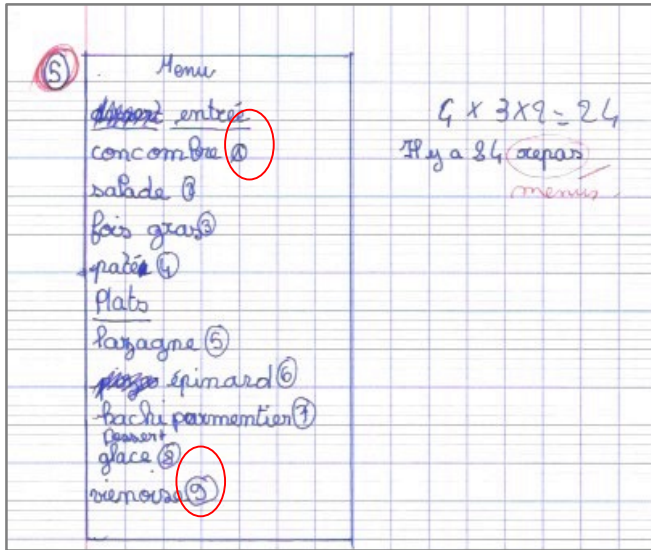 5
Menu
entrée
concombre 1
salade 2
fois gras 3
paté 4
Plats
lazagne 5
épinard 6
hachi parmentier 7
Dessert
glace 8
vienoise 9
4 x 3 x 2 = 24
Il y a 24 repas
menus